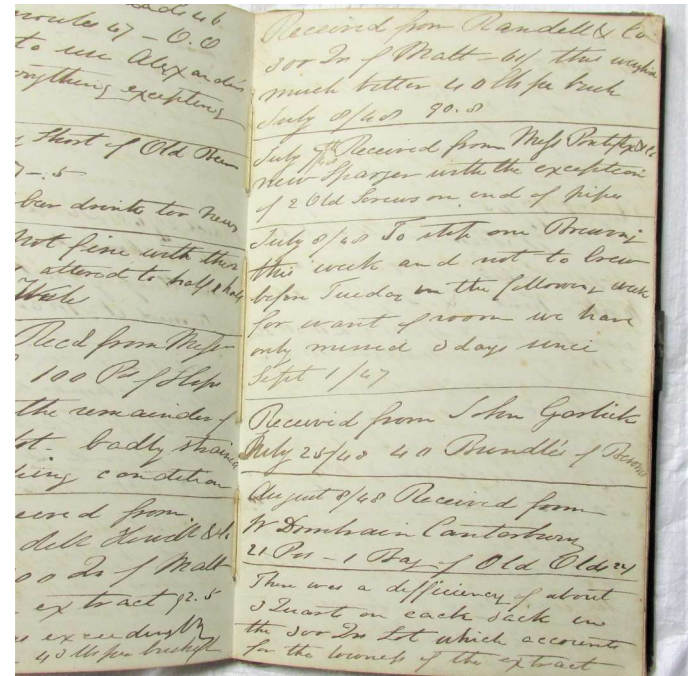 Lads 46
to use Alexanders
everything excepting
Short of Old Beer
7-.5
beer drinks too new
Not fine with them
altered to half & half
Week
Recd from Mess
100 Ps of Hops
the remainder of
lot - badly strained
condition
from
Howell & Co
00 Qrs of Malt
extract 92.5
exceedingly
40 lb per bushel
Received from Randell & Co
300 Qrs of Malt - 60/ this weighs
much better 40 lbs per bush
July 8/48 90.8
July Received from Mess Pontifex & Co
new Sparger with the exception
of 2 Old Screws on end of pipes
July 8/48 To stop one Brewing
this week and not to brew
before Tuesday in the following week
for want of room we have
only missed 3 days since
Sept 1/47
Received from John Garlick
July 25/48 40 Bundles of
August 8/48 Received from
W Dombrain Canterbury
21 Pos - 1 Bag of Old Olds
There was a defficiency of about
3 Quart on each sack in
the 300 Qrs Lot which accounts
for the lowness of the extract